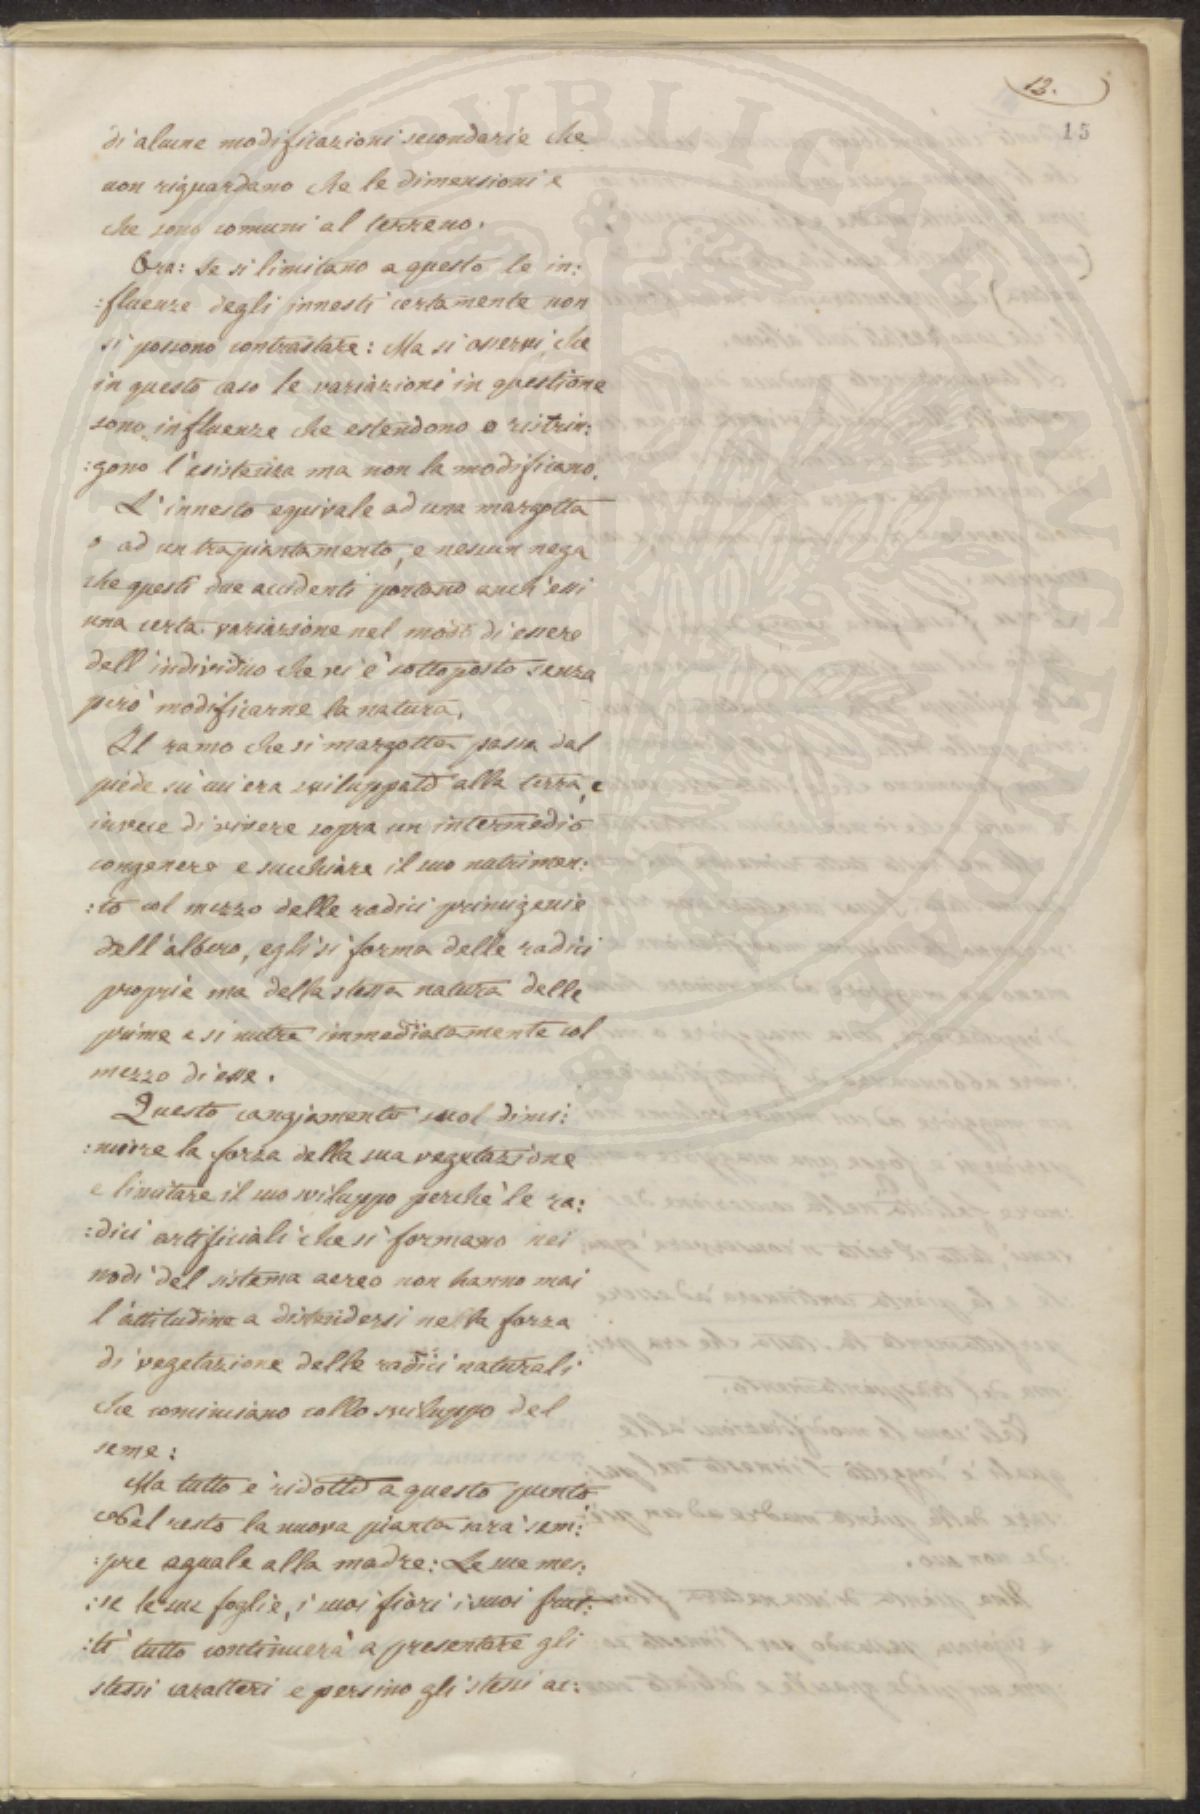 13.
15
di alcune modificazioni secondarie che
non riguardano che le dimensioni e
che sono comuni al terreno.
Ora: se si limitano a questo le in:
:fluenze degli innesti certamente non
si possono contrastare: Ma si osservi che
in questo caso le variazioni in questione
sono influenze che estendono o ristrin:
:gono l'esistenza ma non la modificano.
L'innesto equivale ad una margotta
o ad un trapiantamento, e nessun nega
che questi due accidenti portano anch'essi
una certa variazione nel modo di essere
dell'individuo che vi è sottoposto senza
però modificarne la natura.
Il ramo che si margotta passa dal
piede su cui era sviluppato alla terra, e
invece di vivere sopra un intermedio
congenere e succhiare il suo nutrimen:
:to col mezzo delle radici primigenie
dell'albero, egli si forma delle radici
proprie ma della stessa natura delle
prime e si nutre immediatamente col
mezzo di esse.
Questo cangiamento suol dimi:
:nuire la forza della sua vegetazione
e limitare il suo sviluppo perchè le ra:
:dici artificiali che si formano nei
nodi del sistema aereo non hanno mai
l'attitudine a distendersi nella forza
di vegetazione delle radici naturali
che cominciano collo sviluppo del
seme:
Ma tutto è ridotto a questo punto
del resto la nuova pianta sarà sem:
:pre eguale alla madre: Le sue mes:
:se le sue foglie, i suoi fiori i suoi frut:
:ti tutto continuerà a presentare gli
stessi caratteri e persino gli stessi ac:
PUBLICAE AVGENDAE